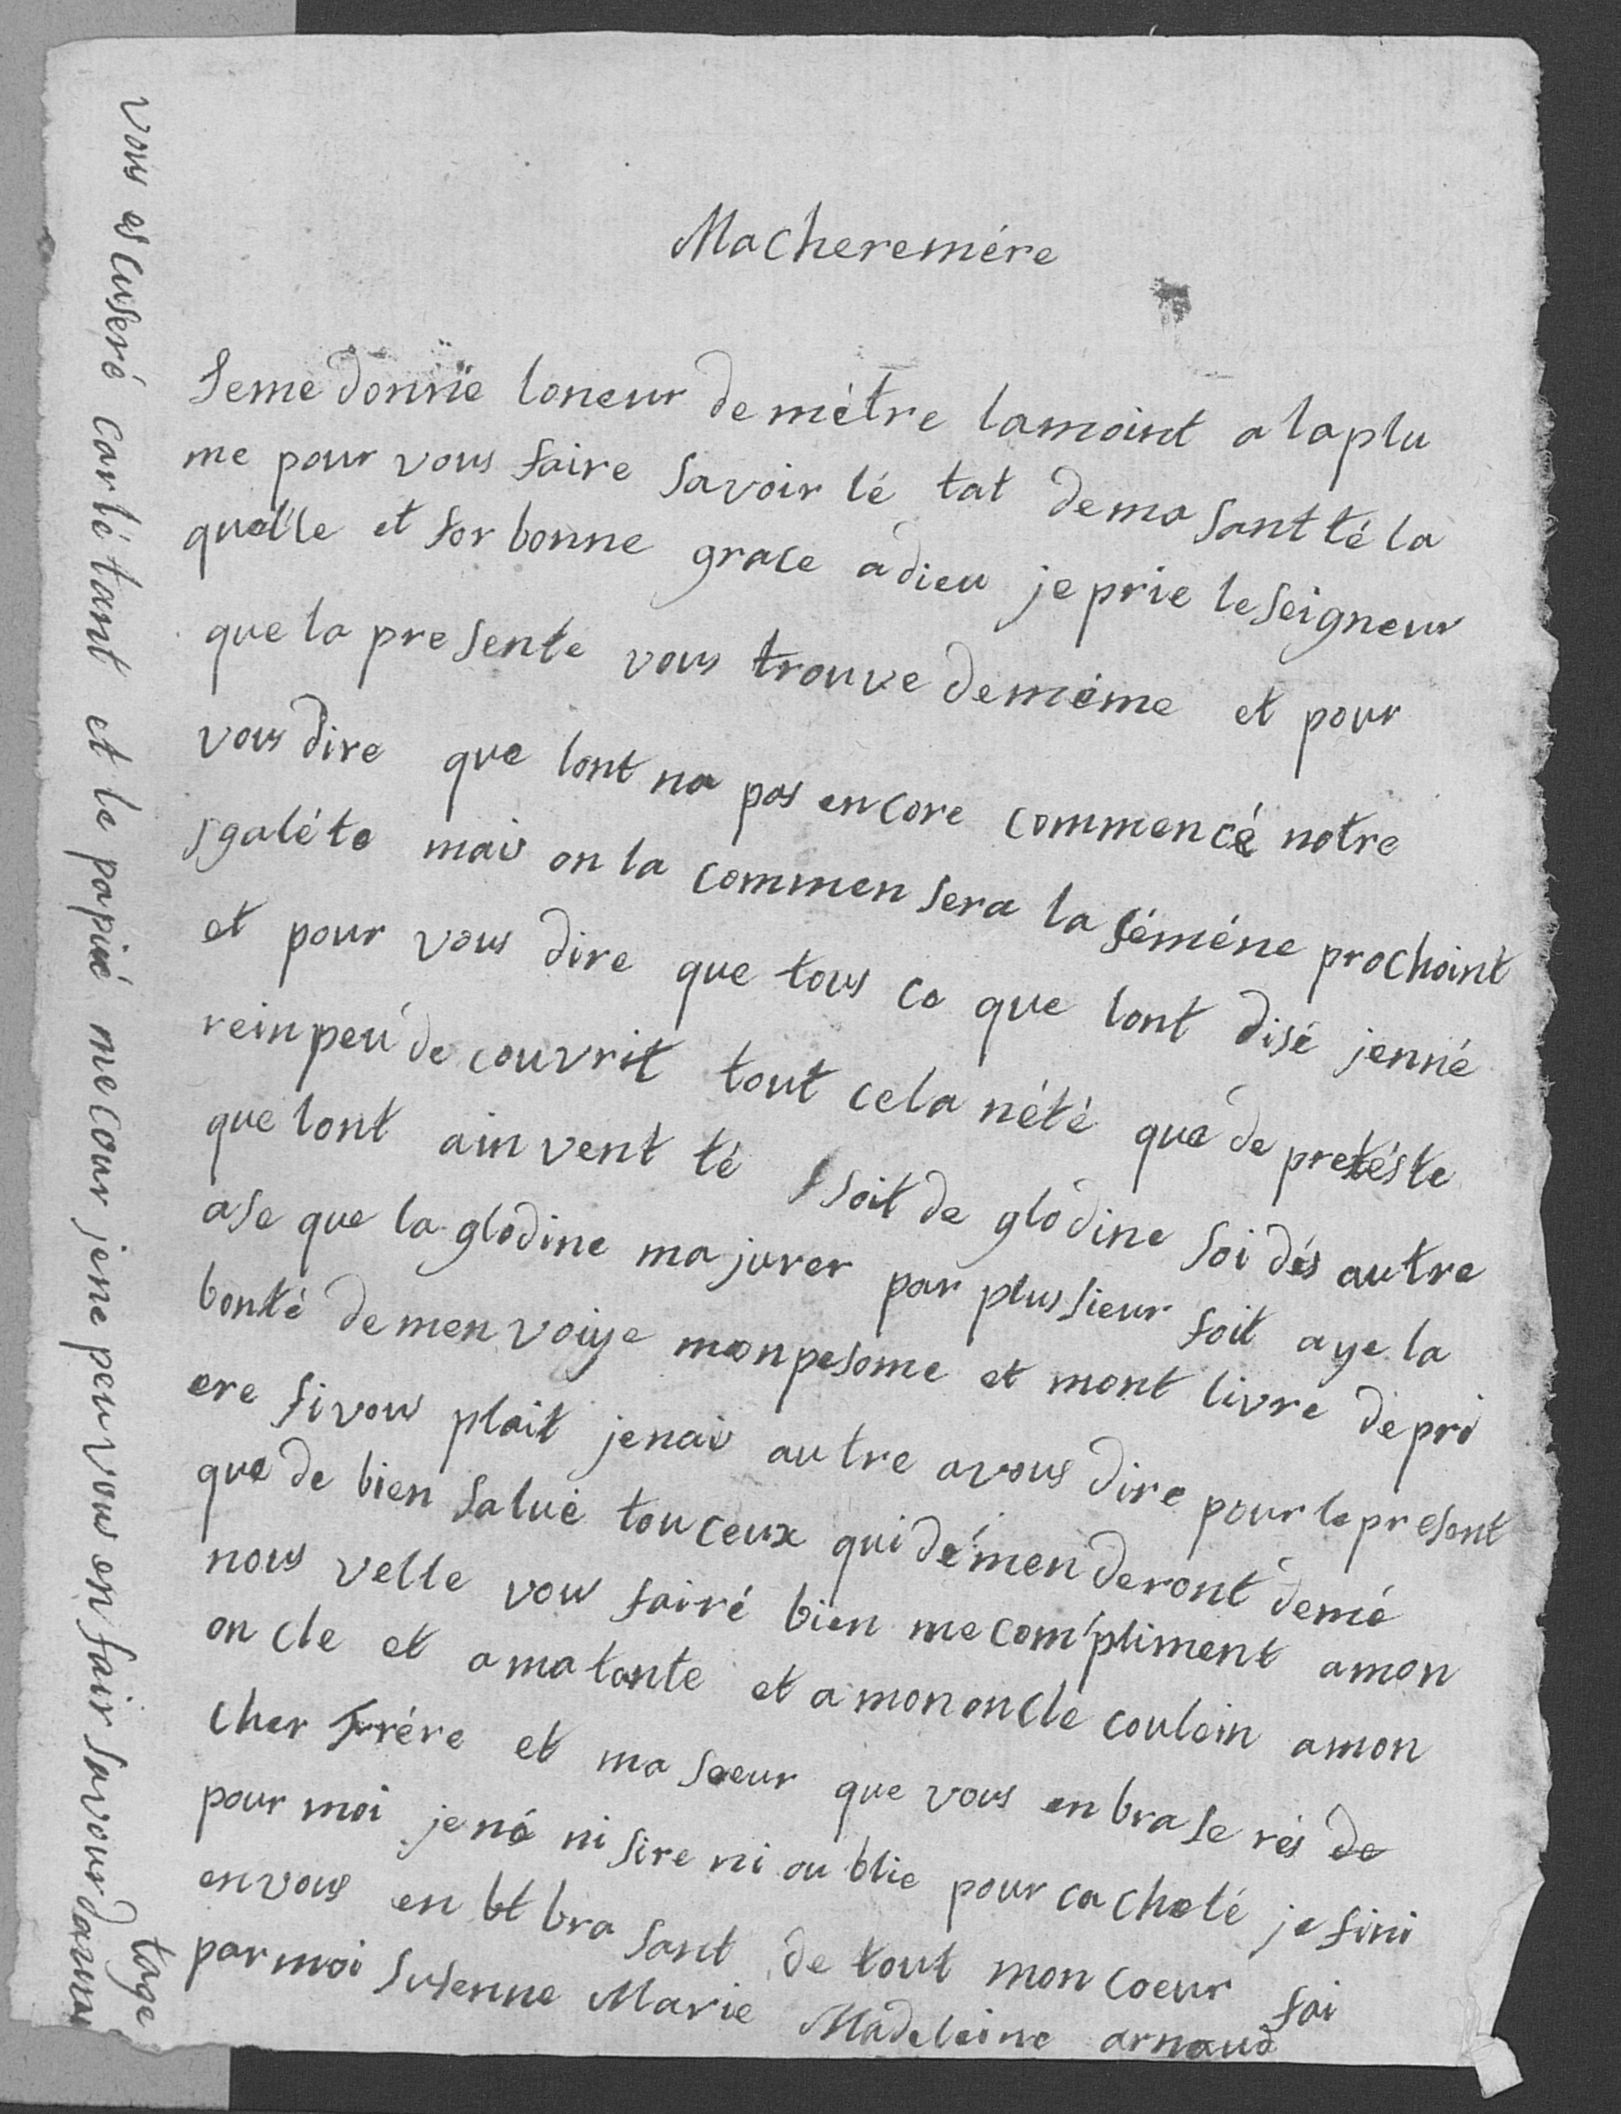 Macheremére
Jeme donnë loneur demétre lamoint alaplu
me pour vous faire savoir lé tat dema santté la
quelle et for bonne grace adieu jeprie leseigneur
que la presente vous trouve deméme et pour
vous dire que lont na pas encore commencé notre
sgaléte mais on la commensera la séméne prochoint
et pour vous dire que tous ce que lont disé jenné
reinpeu decouvrit tout cela nété que de pretéste
que lont ainventté soit de glodine soi dés autre
ase que la glodine ma jurer par plussieur foit aye la
bonté demenvoiye monpesome et mont livre depri
ere sivous plait jenais autre avous dire pour lepresent
que de bien salué touceux quidémenderont demé
nous velle vous fairé bien mecompliment amon
oncle et amatante et amononcle coulein amon
cher frére et ma soeur que vous enbraserés de
pour moi jené nisire ni oublie pour cacheté jefini
envous en bt brasant de tout mon coeur fai
parmoi susenne Marie Madeleine arnaud
vous escuseré carlétant et le papié mecour jene peu vous en fair savour davan
tage